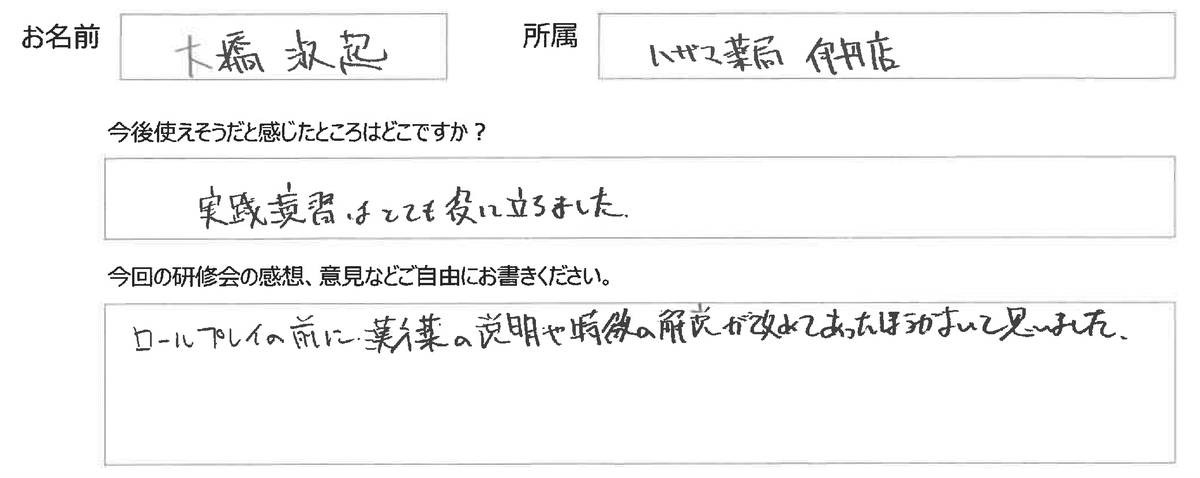 お名前 大橋 淑起 所属 ハザマ薬局 伊丹店
今後使えそうだと感じたところはどこですか？
実践演習はとても役に立ちました.
今回の研修会の感想、意見などご自由にお書きください。
ロールプレイの前に の説明や特徴の解説が改めてあったほうがよいと思いました.